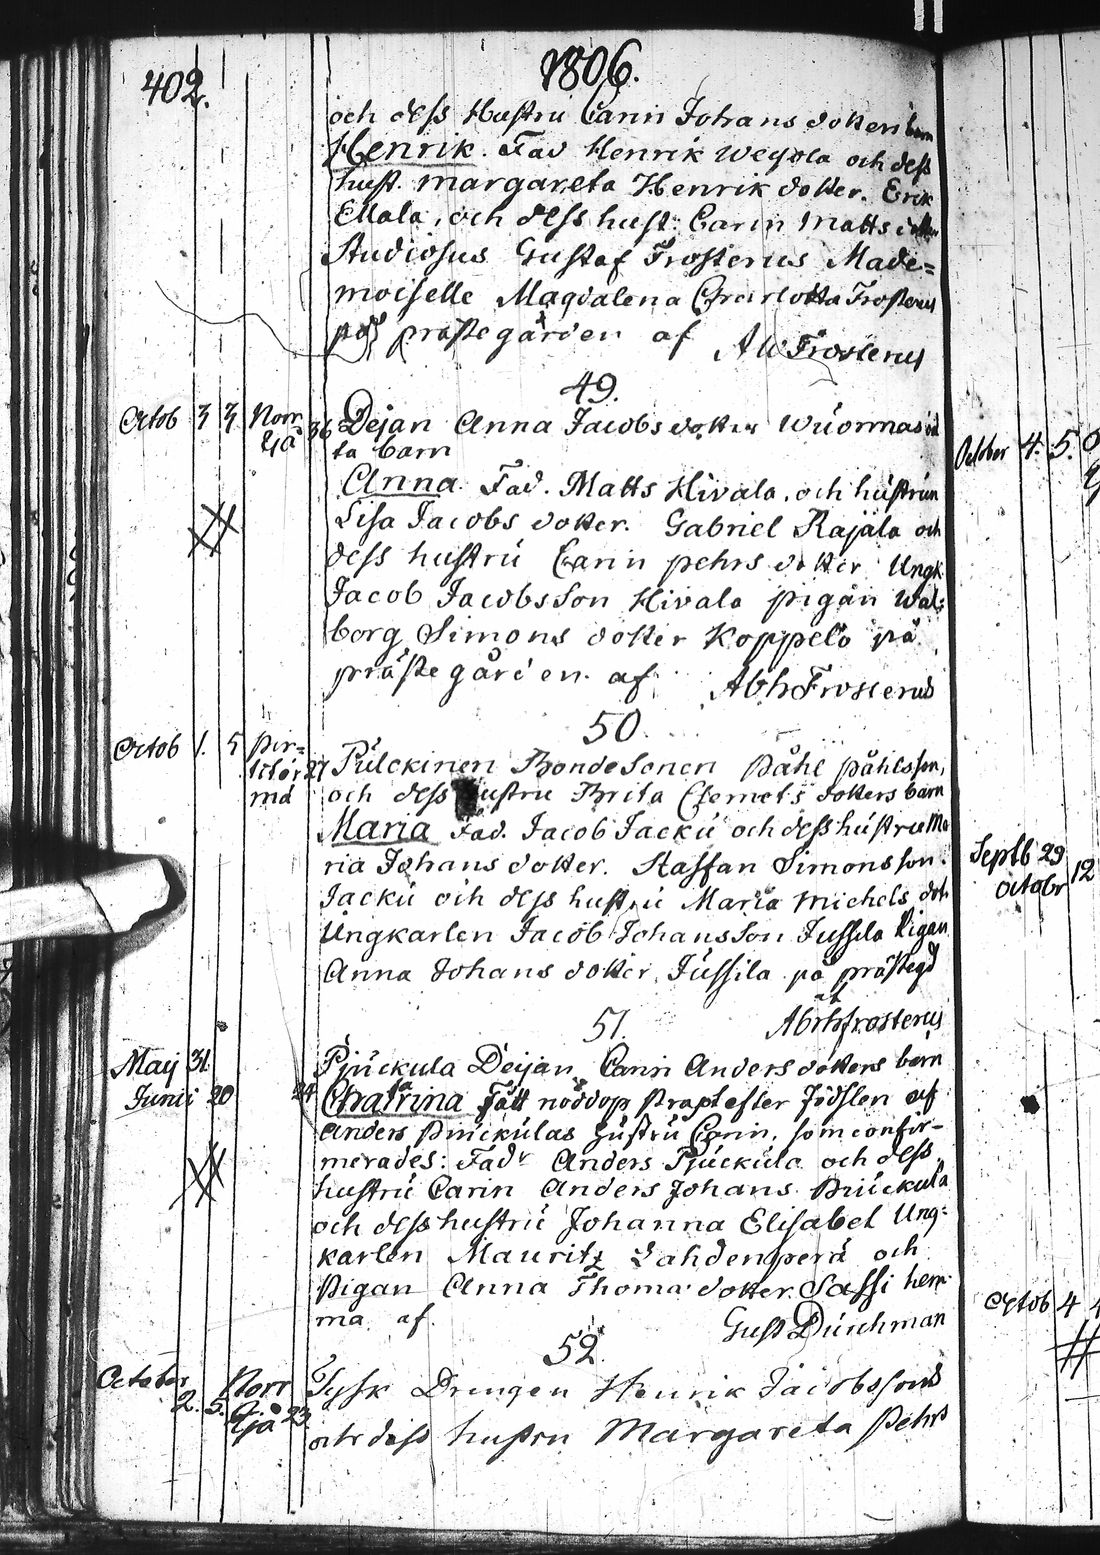 402.
1806.
och dess Hustru Carin Johans dotters barn
Henrik. Fad Henrik Weyola och dess
hust. margareta Henrik dotter. Erik
Mala, och dess hust: Carin Matts dotter
Studiosus Gustaf Frosterus Made=
moiselle Magdalena Charlotta Frosterus
på prästegården af Frosterus
49.
Octob 3 3 Norr
Gå 36 Dejan Anna Jacobs dotter
ta barn
Anna. Fad. Matts Hivala, och hustrun
Lisa Jacobs dotter. Gabriel Rajala och
dess hustru Carin pehrs dotter Ungk
Jacob Jacobsson Hivala pigan Wal=
borg Simons dotter Koppelo på
prästegården. af Abh Frosterus
50.
Octob 1. 5 27 Pulckinen Bondesonen Påhl påhlsson,
och dess hustru Brita Clemets dotters barn
Maria Fad. Jacob Jacku och dess hustru Ma
ria Johans dotter. Staffan Simonsson.
Jacku och dess hustru Maria Michels dot
Ungkarlen Jacob Johansson Jussila Pigan
Anna Johans dotter Jussila på prästegd
af
Abrh frosterus
51.
Maij 31
Junii 20 24
Pjuckula Deijan Carin Anders dotters barn
Chatrina Fått nöddop strax efter födslen af
Anders Pjuckulas hustru Carin, som confir=
merades: Fadr Anders Pjuckula och dess
hustru Carin Anders Johans Pjuckula
och dess hustru Johanna Elisabet Ung=
karlen Mauritz Lahdenperä och
Pigan Anna Thomas dotter Sassi hem
ma af. Gust Duchman
52.
October
2. 5. Norr
Gå 23
Tysk Drengen Henrik Jacobssons
och dess hustru Margareta Pehrs
October 4. 5.
Septb 29
Octobr 12
Octob 4